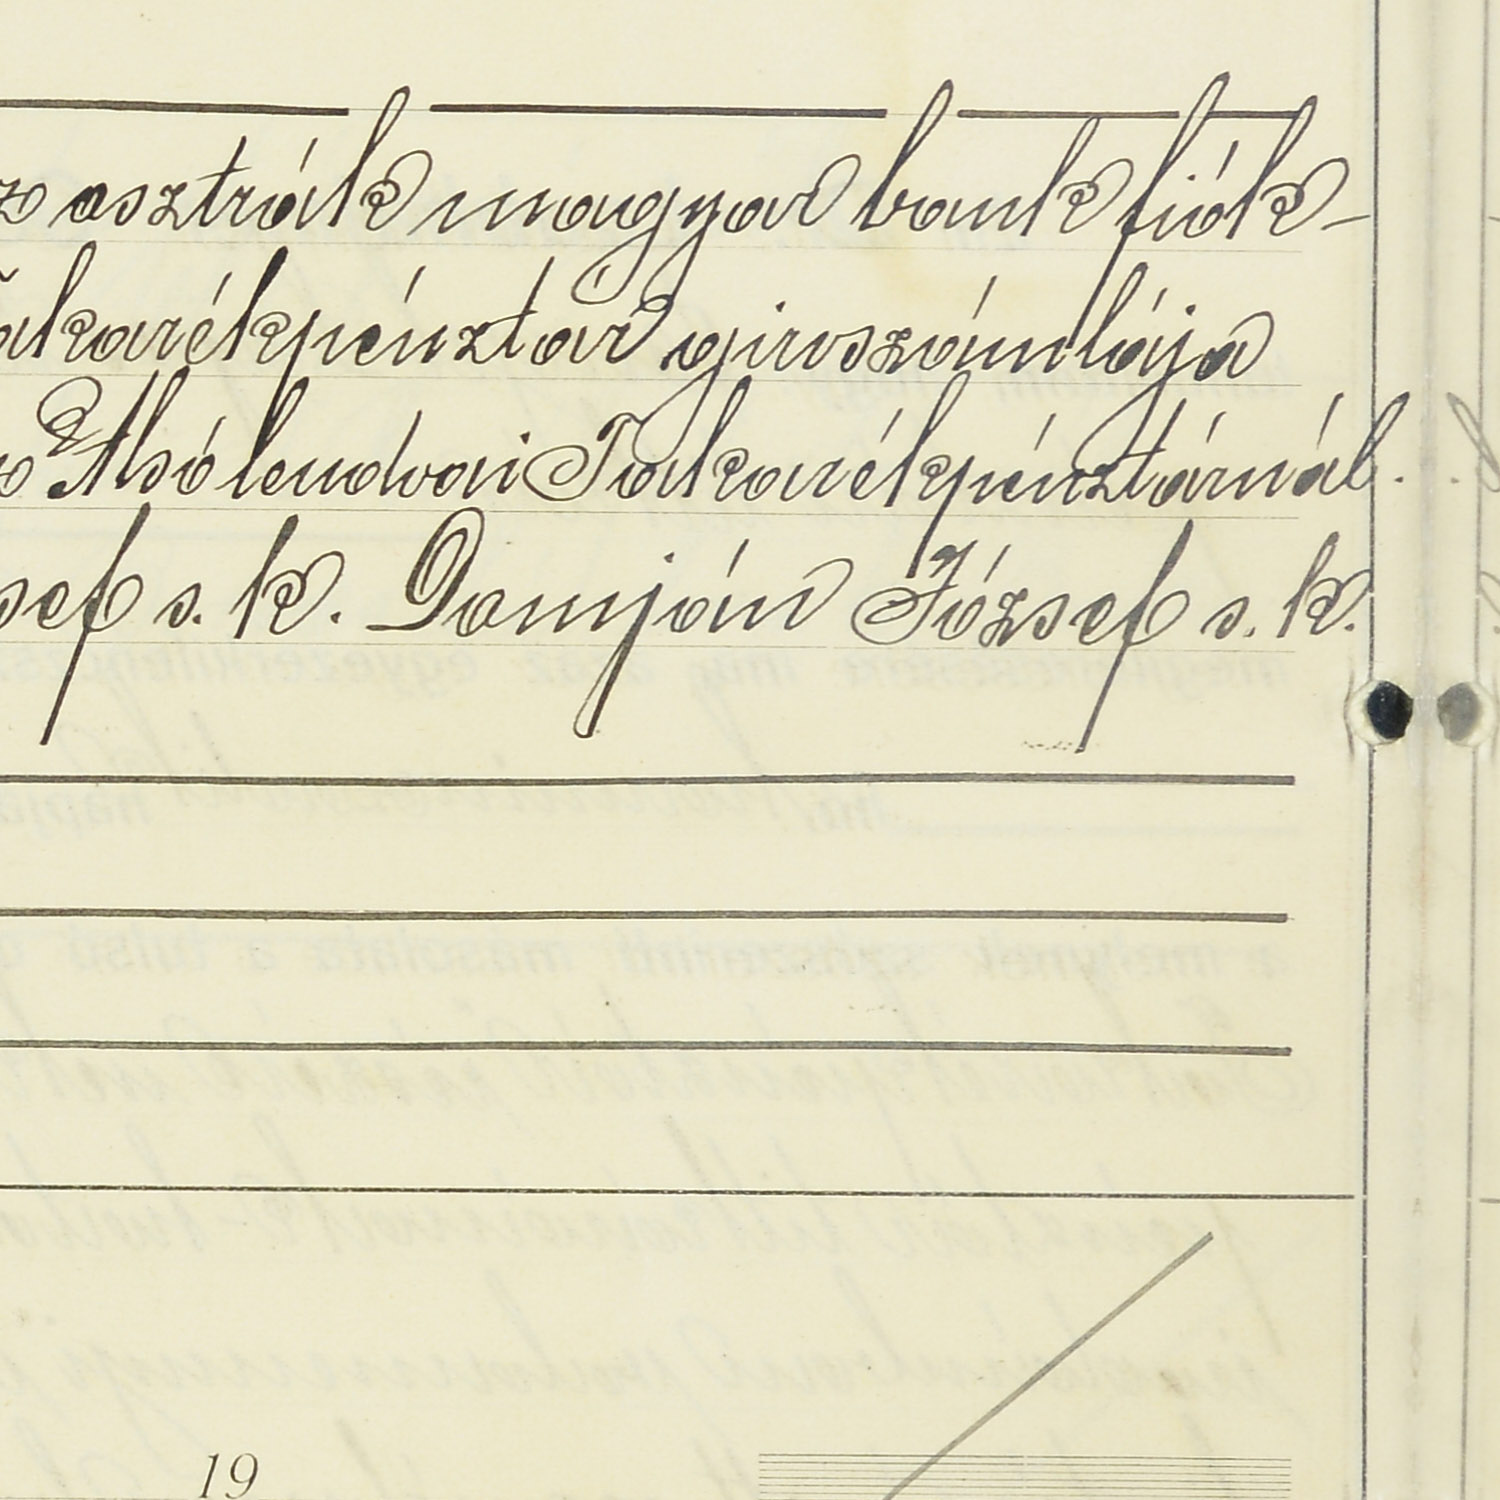 z osztrák magyar bank fiók-
akarékpénztár giroszámlája
Alsólendvai Takarékpénztárnál.
sef s. k. Domján József s. k.
19